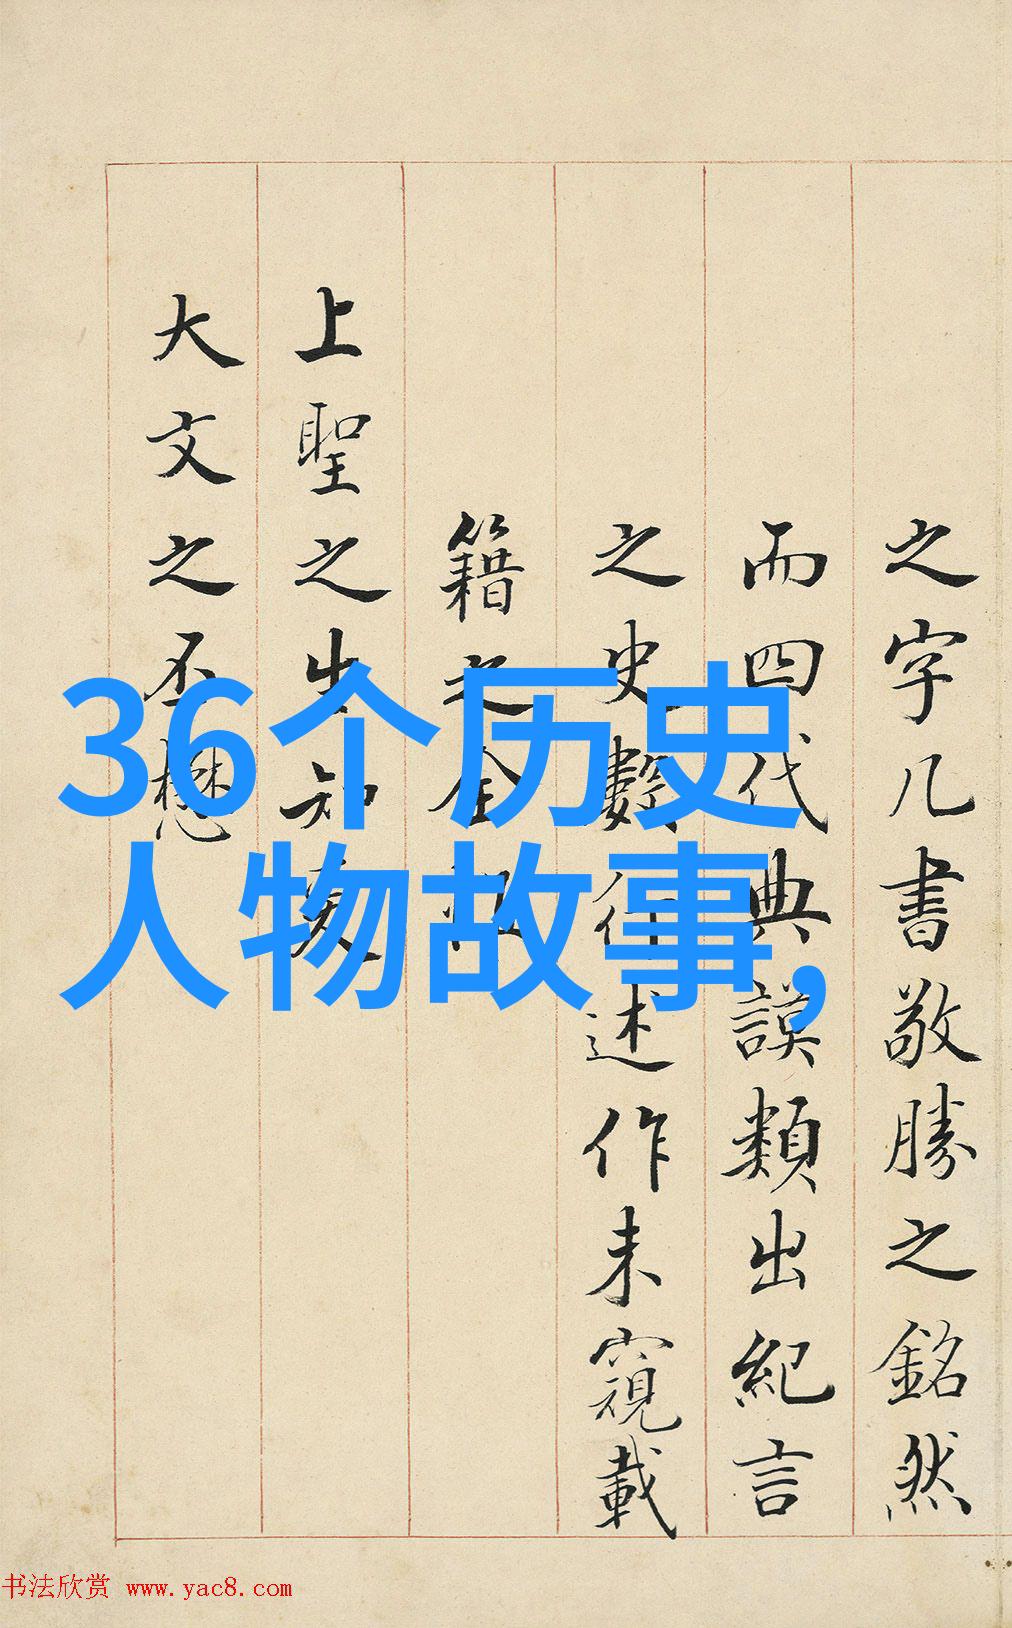 之字几書敬勝之銘然
而四代典謨類出紀言
之史數作述作未窺載
籍之全
上聖之生知
大文之丕懋
36个历史
人物故事,
书法欣赏 www.yac8.com